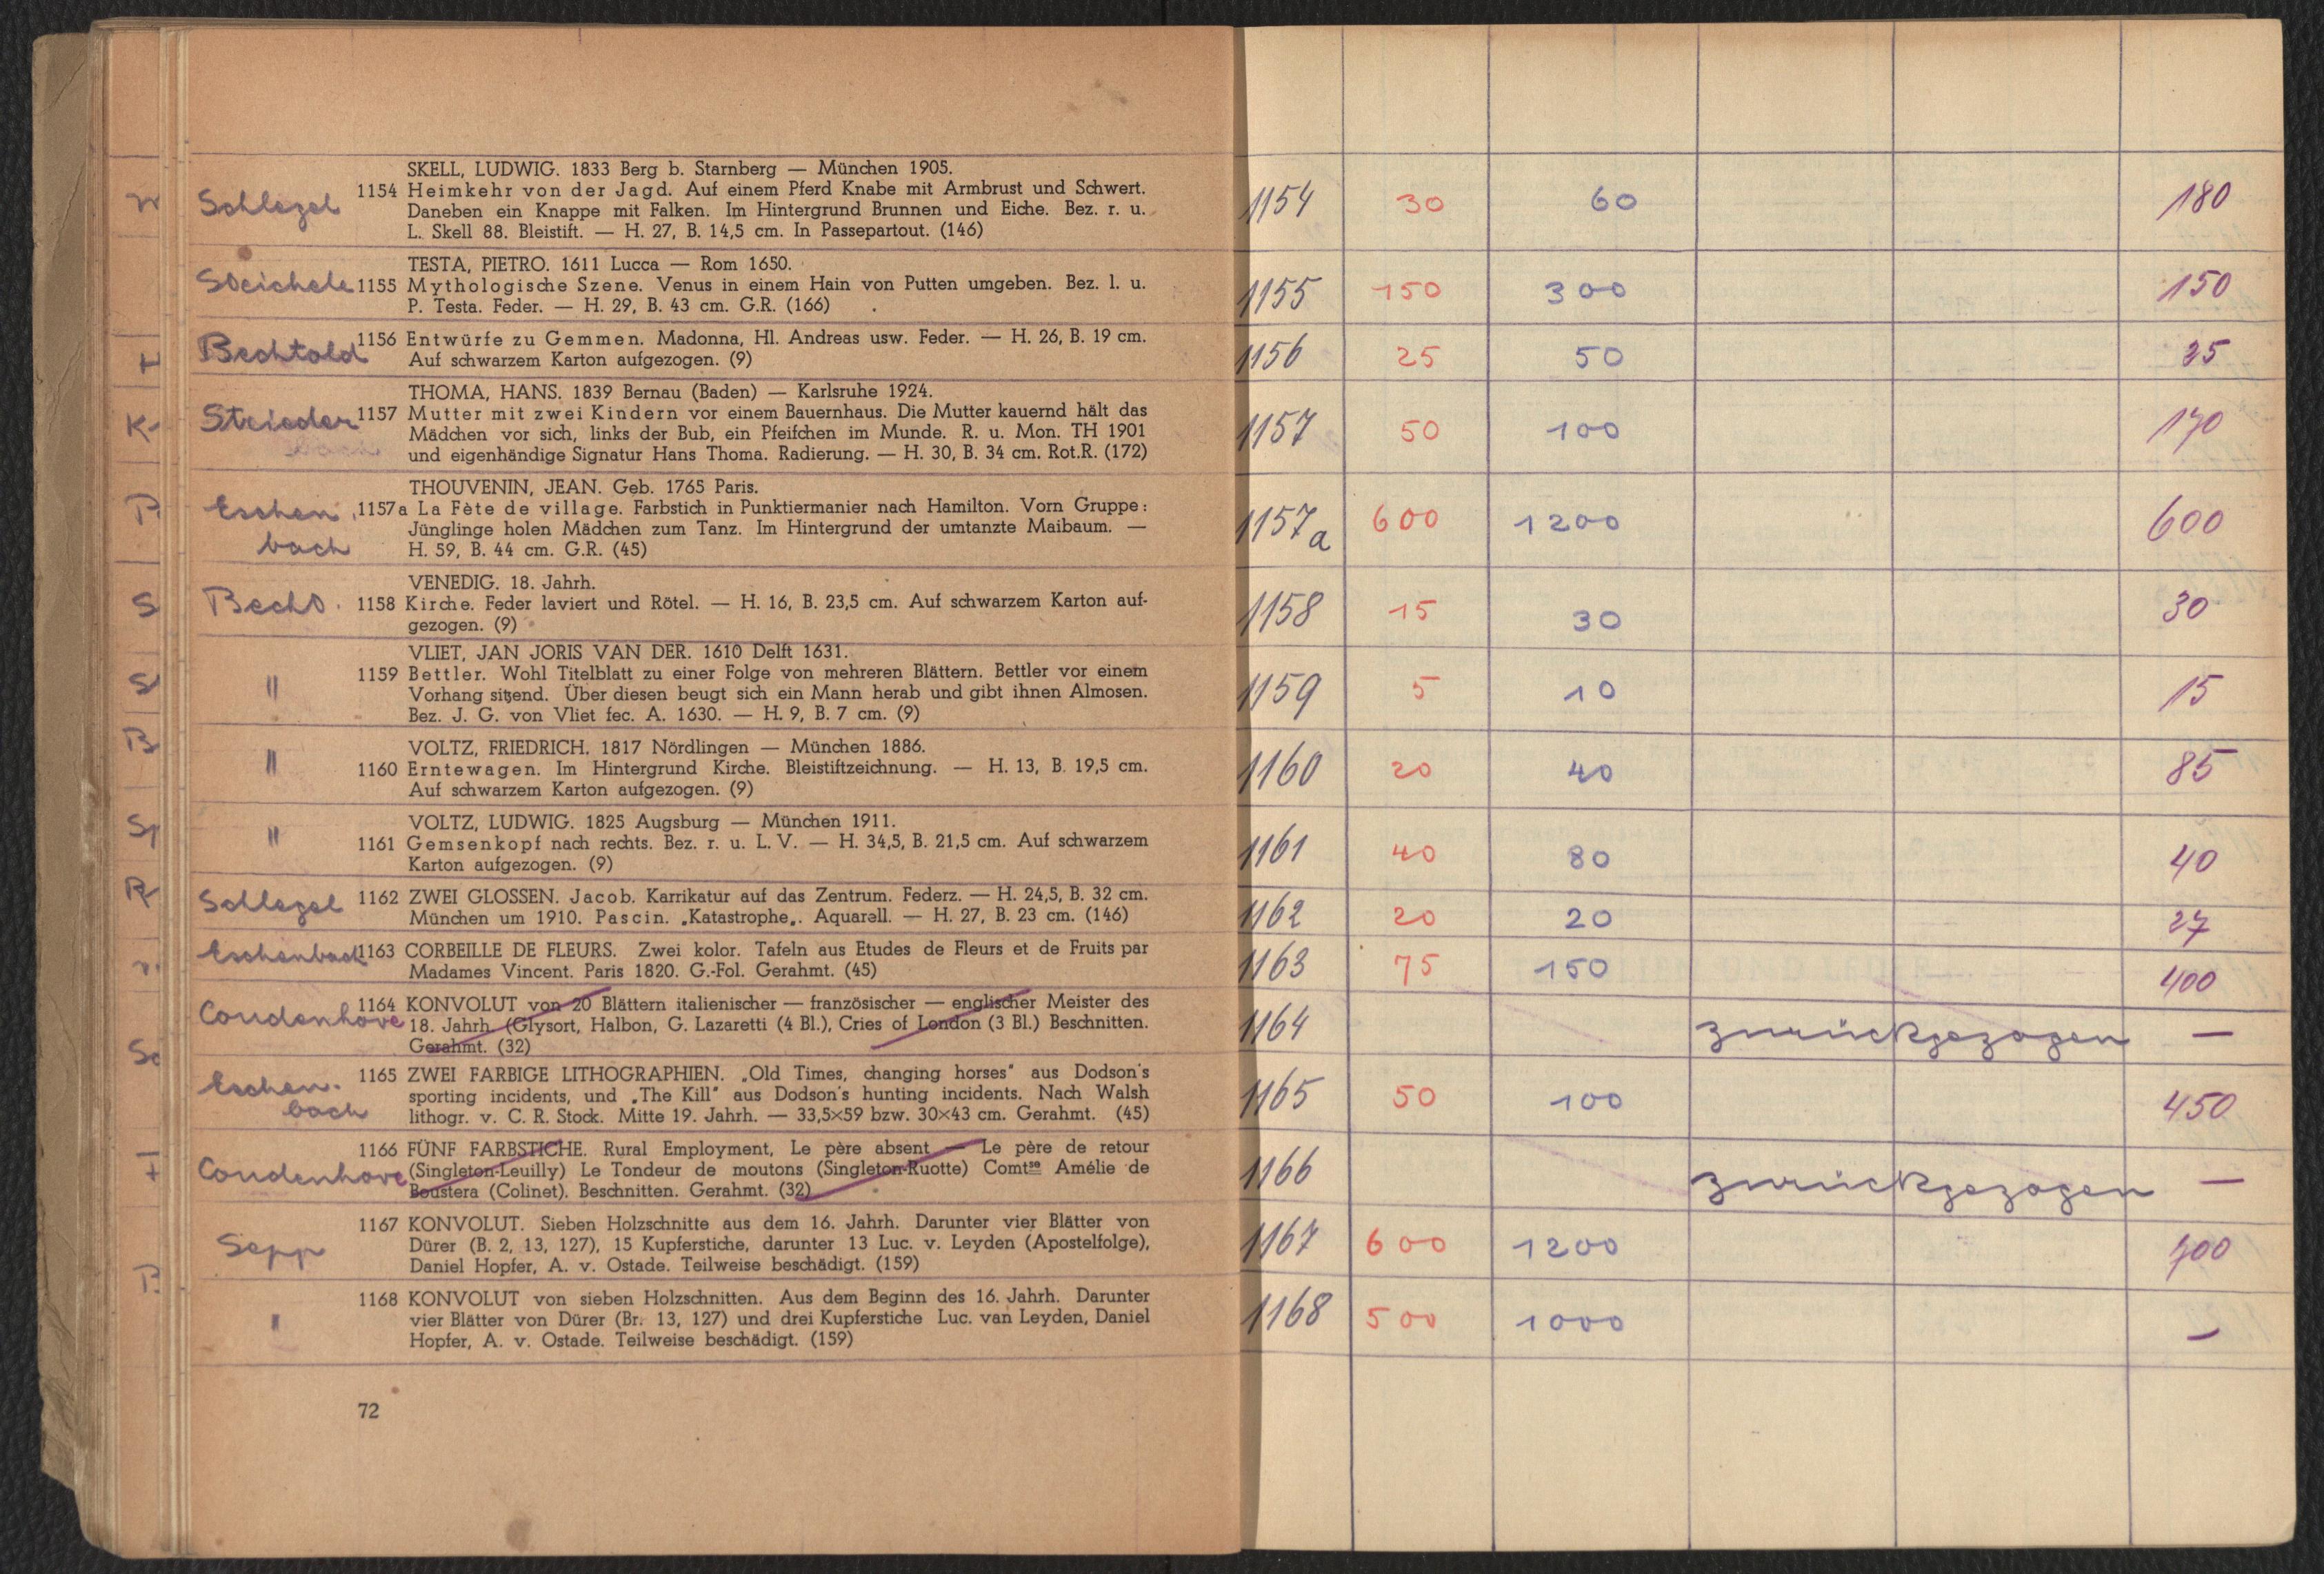 SKELL, LUDWIG. 1833 Berg b. Starnberg — München 1905.
Schlegel 1154 Heimkehr von der Jagd. Auf einem Pferd Knabe mit Armbrust und Schwert.
Daneben ein Knappe mit Falken. Im Hintergrund Brunnen und Eiche. Bez. r. u.
L. Skell 88. Bleistift. — H. 27, B. 14,5 cm. In Passepartout. (146)
TESTA, PIETRO. 1611 Lucca — Rom 1650.
1155 Mythologische Szene. Venus in einem Hain von Putten umgeben. Bez. l. u.
P. Testa. Feder. — H. 29, B. 43 cm. G.R. (166)
Bechtold 1156 Entwürfe zu Gemmen. Madonna, Hl. Andreas usw. Feder. — H. 26, B. 19 cm.
Auf schwarzem Karton aufgezogen. (9)
THOMA, HANS. 1839 Bernau (Baden) — Karlsruhe 1924.
Strieder 1157 Mutter mit zwei Kindern vor einem Bauernhaus. Die Mutter kauernd hält das
Mädchen vor sich, links der Bub, ein Pfeifchen im Munde. R. u. Mon. TH 1901
und eigenhändige Signatur Hans Thoma. Radierung. — H. 30, B. 34 cm. Rot.R. (172)
THOUVENIN, JEAN. Geb. 1765 Paris.
Eschen 1157a La Fète de village. Farbstich in Punktiermanier nach Hamilton. Vorn Gruppe:
bach Jünglinge holen Mädchen zum Tanz. Im Hintergrund der umtanzte Maibaum. —
H. 59, B. 44 cm. G.R. (45)
VENEDIG. 18. Jahrh.
Becht. 1158 Kirche. Feder laviert und Rötel. — H. 16, B. 23,5 cm. Auf schwarzem Karton auf-
gezogen. (9)
VLIET, JAN JORIS VAN DER. 1610 Delft 1631.
" 1159 Bettler. Wohl Titelblatt zu einer Folge von mehreren Blättern. Bettler vor einem
Vorhang sitzend. Über diesen beugt sich ein Mann herab und gibt ihnen Almosen.
Bez. J. G. von Vliet fec. A. 1630. — H. 9, B. 7 cm. (9)
VOLTZ, FRIEDRICH. 1817 Nördlingen — München 1886.
" 1160 Erntewagen. Im Hintergrund Kirche. Bleistiftzeichnung. — H. 13, B. 19,5 cm.
Auf schwarzem Karton aufgezogen. (9)
VOLTZ, LUDWIG. 1825 Augsburg — München 1911.
" 1161 Gemsenkopf nach rechts. Bez. r. u. L. V. — H. 34,5, B. 21,5 cm. Auf schwarzem
Karton aufgezogen. (9)
Schlegel 1162 ZWEI GLOSSEN. Jacob. Karrikatur auf das Zentrum. Federz. — H. 24,5, B. 32 cm.
München um 1910. Pascin. „Katastrophe„. Aquarell. — H. 27, B. 23 cm. (146)
Eschenbach 1163 CORBEILLE DE FLEURS. Zwei kolor. Tafeln aus Etudes de Fleurs et de Fruits par
Madames Vincent. Paris 1820. G.-Fol. Gerahmt. (45)
Coudenhove 1164 KONVOLUT von 20 Blättern italienischer — französischer — englischer Meister des
18. Jahrh. (Glysort, Halbon, G. Lazaretti (4 Bl.), Cries of London (3 Bl.) Beschnitten.
Gerahmt. (32)
Eschen- 1165 ZWEI FARBIGE LITHOGRAPHIEN. „Old Times, changing horses" aus Dodson's
bach sporting incidents, und „The Kill" aus Dodson's hunting incidents. Nach Walsh
lithogr. v. C. R. Stock. Mitte 19. Jahrh. — 33,5×59 bzw. 30×43 cm. Gerahmt. (45)
1166 FÜNF FARBSTICHE. Rural Employment, Le père absent — Le père de retour
Coudenhove (Singleton-Leuilly) Le Tondeur de moutons (Singleton-Ruotte) Comtse Amélie de
Boustera (Colinet). Beschnitten. Gerahmt. (32)
1167 KONVOLUT. Sieben Holzschnitte aus dem 16. Jahrh. Darunter vier Blätter von
Sepp Dürer (B. 2, 13, 127), 15 Kupferstiche, darunter 13 Luc. v. Leyden (Apostelfolge),
Daniel Hopfer, A. v. Ostade. Teilweise beschädigt. (159)
1168 KONVOLUT von sieben Holzschnitten. Aus dem Beginn des 16. Jahrh. Darunter
" vier Blätter von Dürer (Br. 13, 127) und drei Kupferstiche Luc. van Leyden, Daniel
Hopfer, A. v. Ostade. Teilweise beschädigt. (159)
72
1154 30 60 180
1155 150 300 150
1156 25 50 25
1157 50 100 170
1157a 600 1200 600
1158 15 30 30
1159 5 10 15
1160 20 40 85
1161 40 80 40
1162 20 20 27
1163 75 150 400
1164 zurückgezogen —
1165 50 100 450
1166 zurückgezogen —
1167 600 1200 700
1168 500 1000 —